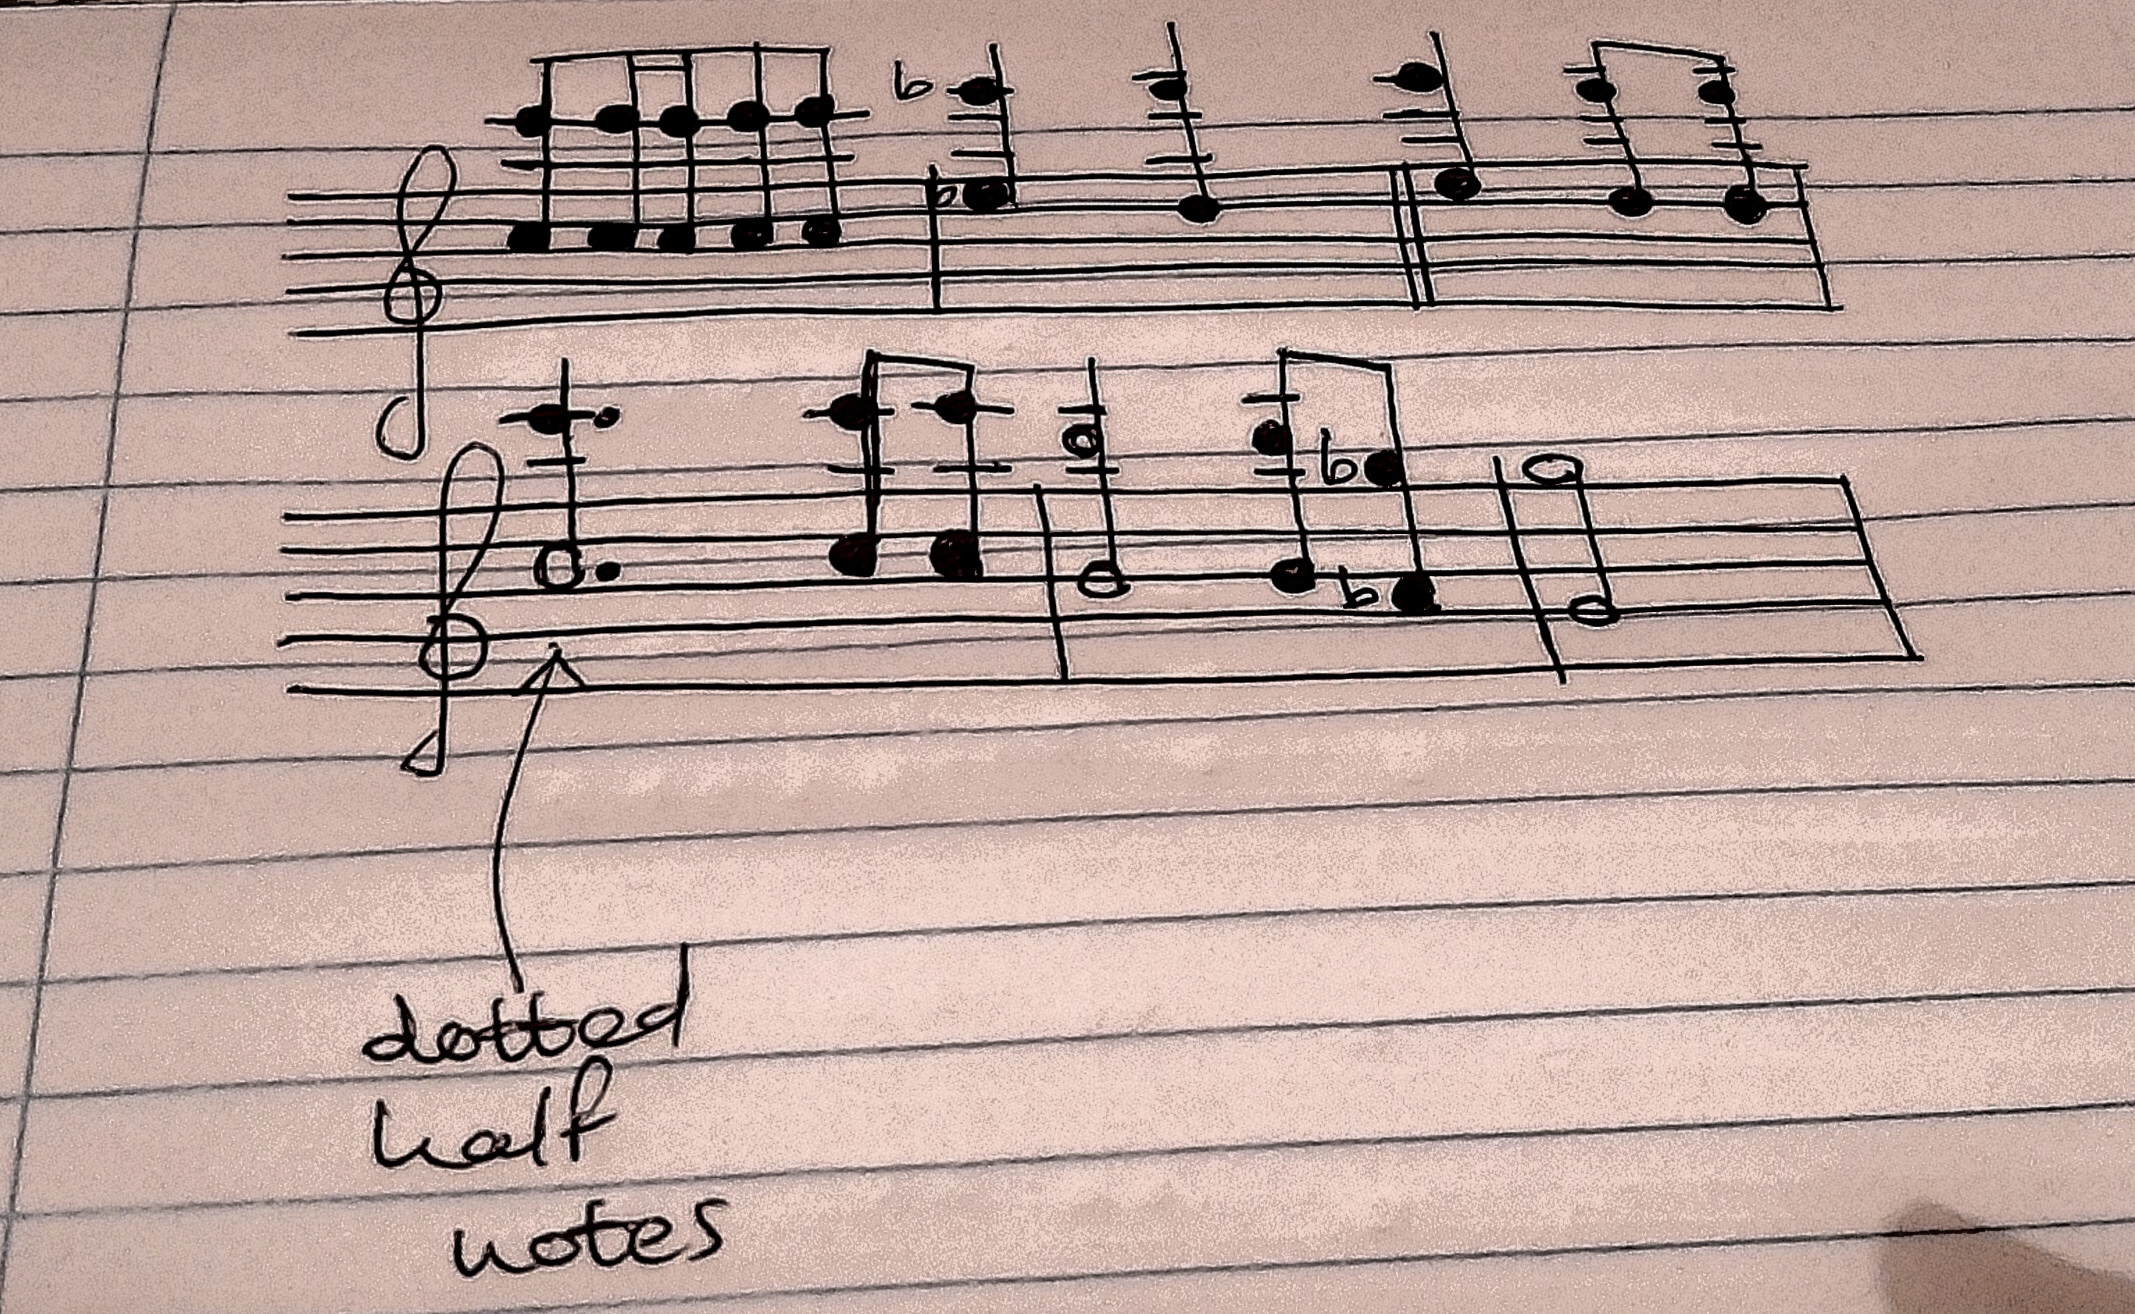 dotted
half
notes